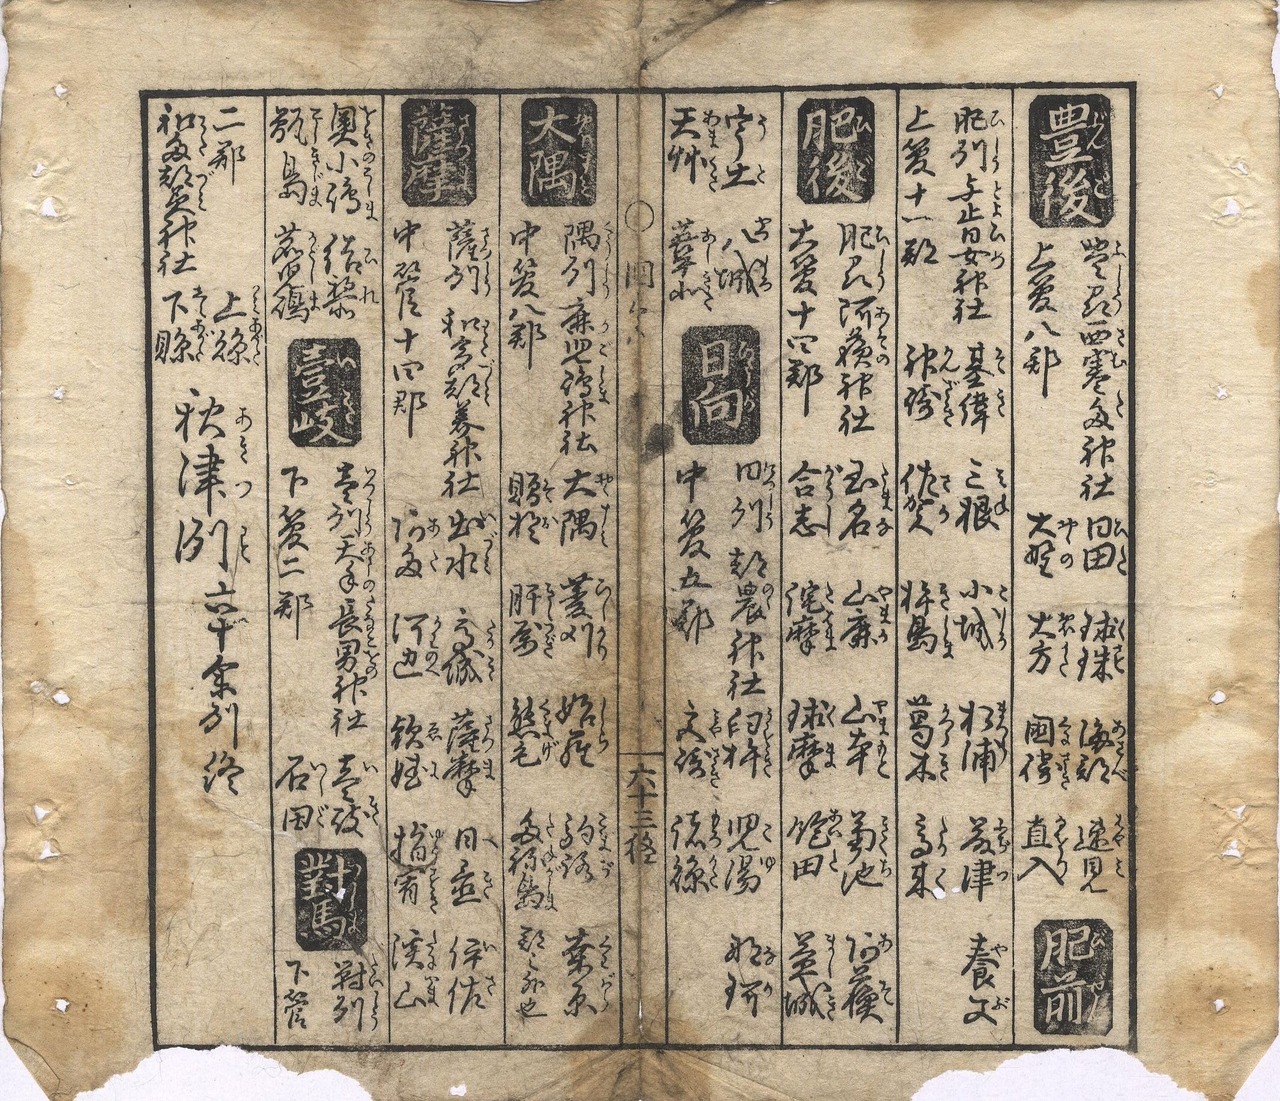 豊後
豊州西寒多神社
上管八郡
日田 球珠 海部 速見
大野 大方 国埼 直入
肥前
肥州与止日女神社
上管十一郡
基肄 三根 小城 松浦 藤津 養父
神埼 佐賀 杵島 葛木 高来
肥後
肥州阿蘇神社
大管十四郡
玉名 山鹿 山本 菊池 阿蘇
合志 詫摩 球摩 飽田 益城
宇土 八城
天草 葦北
日向
日州都農神社
中管五郡
臼杵 児湯 那珂
大隅
隅州鹿児嶋神社
中管八郡
大隅 菱刈 姶羅 桑原
贈於 肝属 熊毛
六十三
薩摩
薩州和多都美神社
中管十四郡
出水 高城 薩摩 日置 伊佐
阿多 河辺 頴娃 指宿 渓山
奥小嶋 給黎
甑島 鹿児嶋
壹岐
壱州天手長男神社
下管二郡
壱岐
石田
對馬
対州
下管
二郡
和多都美神社
上縣
下縣
秋津州六十余州終